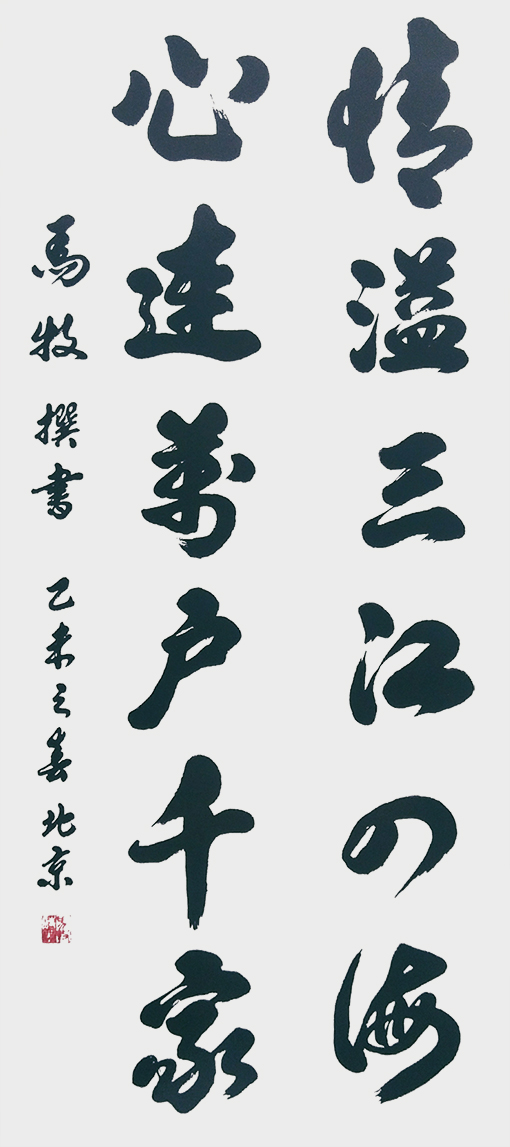 情溢三江四海
心連萬户千家
馬牧撰書 乙未之春北京